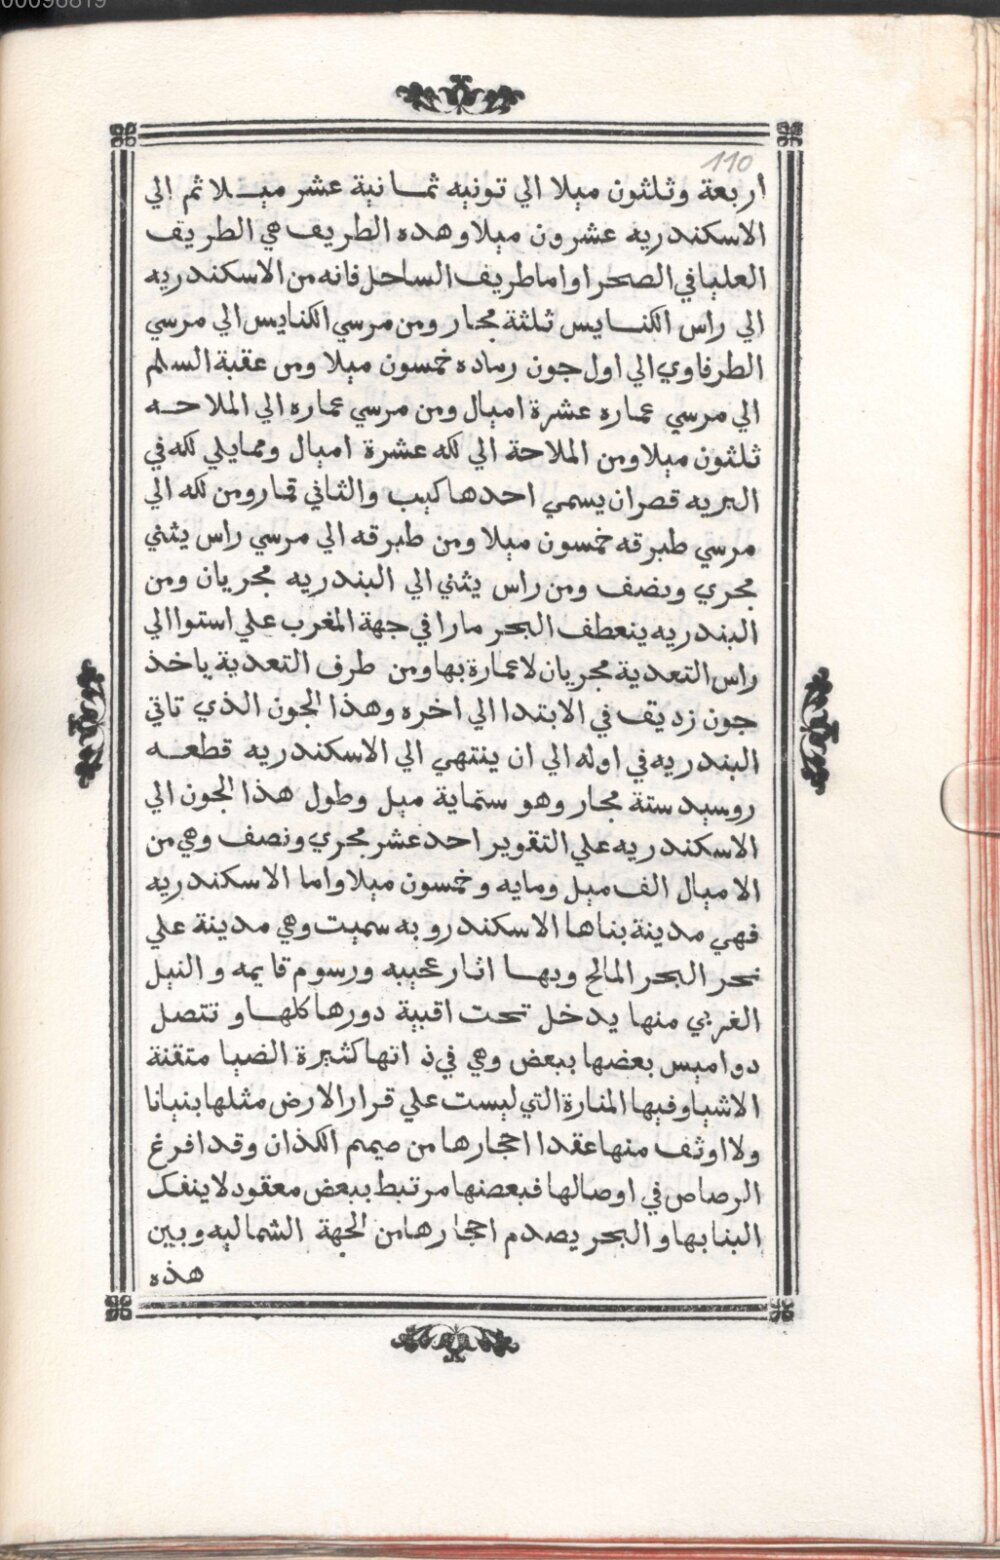 00098819
110
أربعة وثلثون ميلا الي تونيه ثمانية عشر ميلا ثم الي
الاسكندريه عشرون ميلا وهذه الطريق هي الطريق
العليا في الصحرا واما طريق الساحل فانه من الاسكندريه
الي راس الكنايس ثلثة مجار ومن مرسي الكنايس الي مرسي
الطرفاوي الي اول جون رماده خمسون ميلا ومن عقبة السلم
الي مرسي عماره عشرة اميال ومن مرسي عماره الي الملاحه
ثلثون ميلا ومن الملاحة الي لكه عشرة اميال ومما يلي لكه في
البريه قصران يسمي احدها كيب والثاني قمار ومن لكه الي
مرسي طبرقه خمسون ميلا ومن طبرقه الي مرسي راس يثني
مجري ونصف ومن راس يثني الي البندريه مجريان ومن
البندريه ينعطف البحر مارا في جهة المغرب علي استوا الي
راس التعدية مجريان لا عمارة بها ومن طرف التعدية ياخذ
جون زديق في الابتدا الي اخره وهذا الجون الذي تاتي
البندريه في اوله الي ان ينتهي الي الاسكندريه قطعه
روسيه ستة مجار وهو ستماية ميل وطول هذا الجون الي
الاسكندريه علي التقوير احد عشر مجري ونصف وهي من
الاميال الف ميل ومايه وخمسون ميلا واما الاسكندريه
فهي مدينة بناها الاسكندر وبه سميت وهي مدينة علي
نحر البحر المالح وبها اثار عجيبه ورسوم قايمه والنيل
الغربي منها يدخل تحت اقبية دورها كلها وتتصل
دواميس بعضها ببعض وهي في ذاتها كثيرة الضيا متقنة
الاشيا وفيها المنارة التي ليست علي قرار الارض مثلها بنيانا
ولا اوثق منها عقدا احجارها من صميم الكذان وقد افرغ
الرصاص في اوصالها فبعضها مرتبط ببعض معقود لا ينفك
البنا بها والبحر يصدم احجارها من الجهة الشماليه وبين
هذه